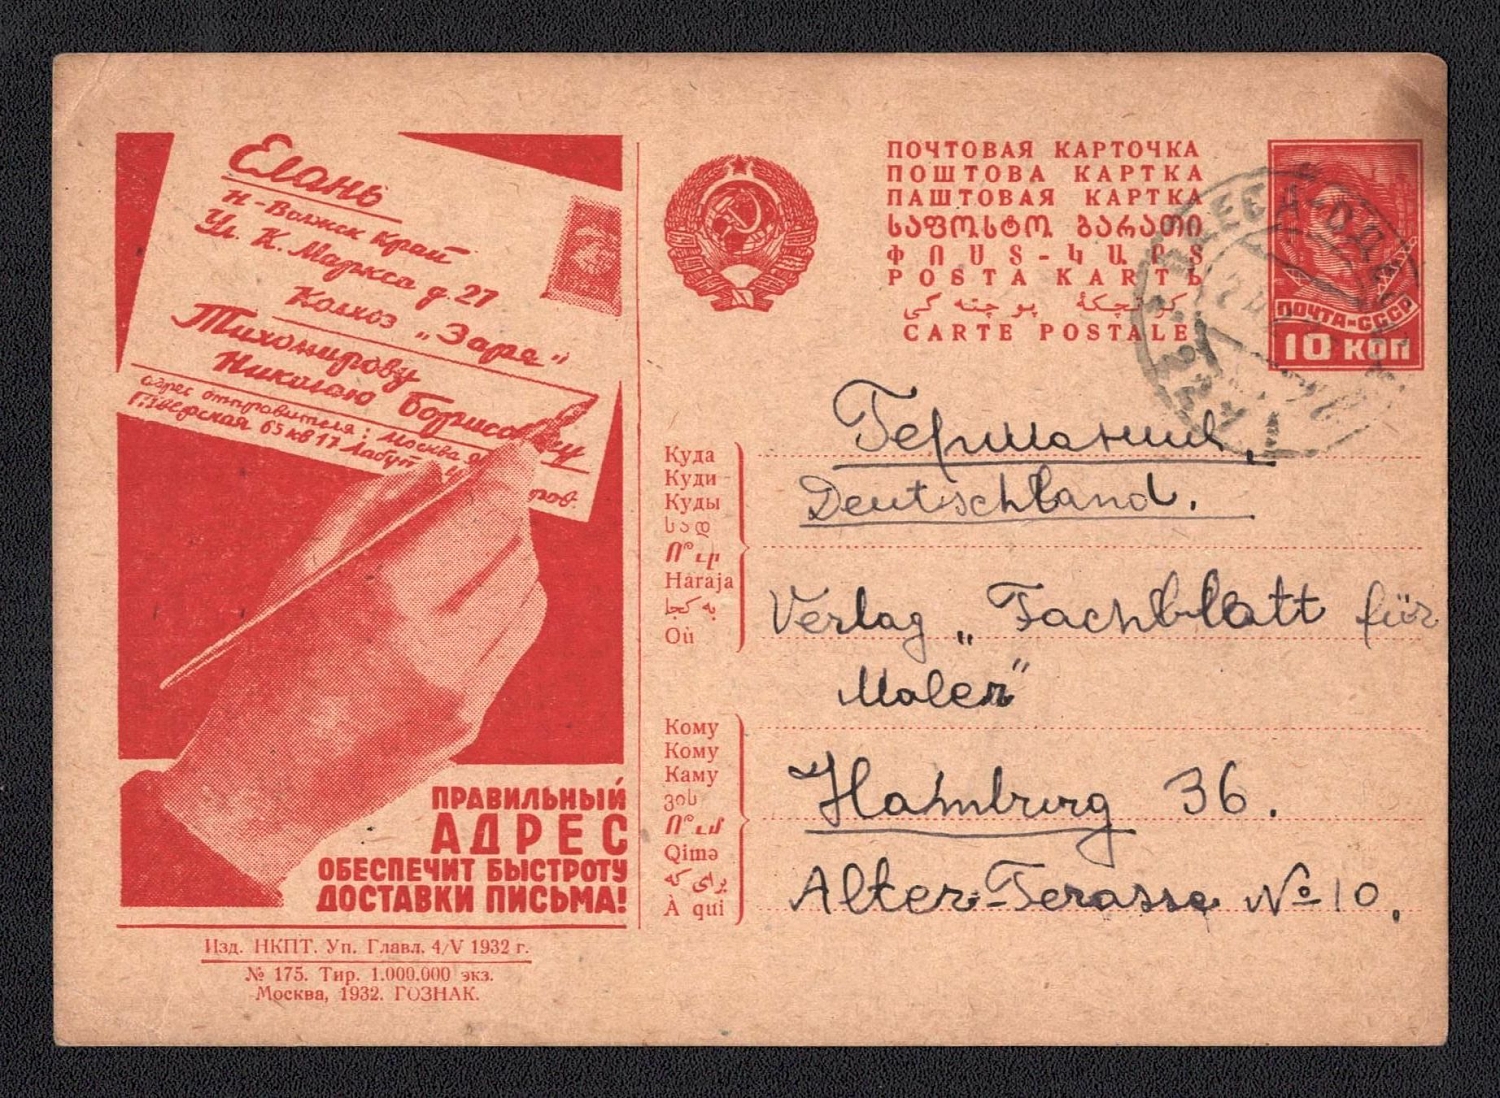 Елань
Н-Волжск край
Ул. К. Маркса д. 27
Колхоз „Заря"
Тихомирову
Николаю Борисовичу
адрес отправителя: Москва
Тверская 65 кв 17
ПРАВИЛЬНЫЙ
АДРЕС
ОБЕСПЕЧИТ БЫСТРОТУ
ДОСТАВКИ ПИСЬМА!
Изд. НКПТ. Уп. Главл. 4/V 1932 г.
№ 175. Тир. 1.000.000 экз.
Москва, 1932. ГОЗНАК.
ПОЧТОВАЯ КАРТОЧКА
ПОШТОВА КАРТКА
ПАШТОВАЯ КАРТКА
ՓՈՍՏ-ԿԱՐՏ
POSTA KARTЬ
CARTE POSTALE
ПОЧТА-СССР
10 КОП
Куда
Куди
Куды
სად
Ո՞ւր
Haraja
به کجا
Où
Германия,
Deutschland.
Verlag „Fachblatt für
Maler"
Кому
Кому
Каму
ვის
Ո՞ւմ
Qimə
برای که
À qui
Hamburg 36.
Alter-Terasse № 10,